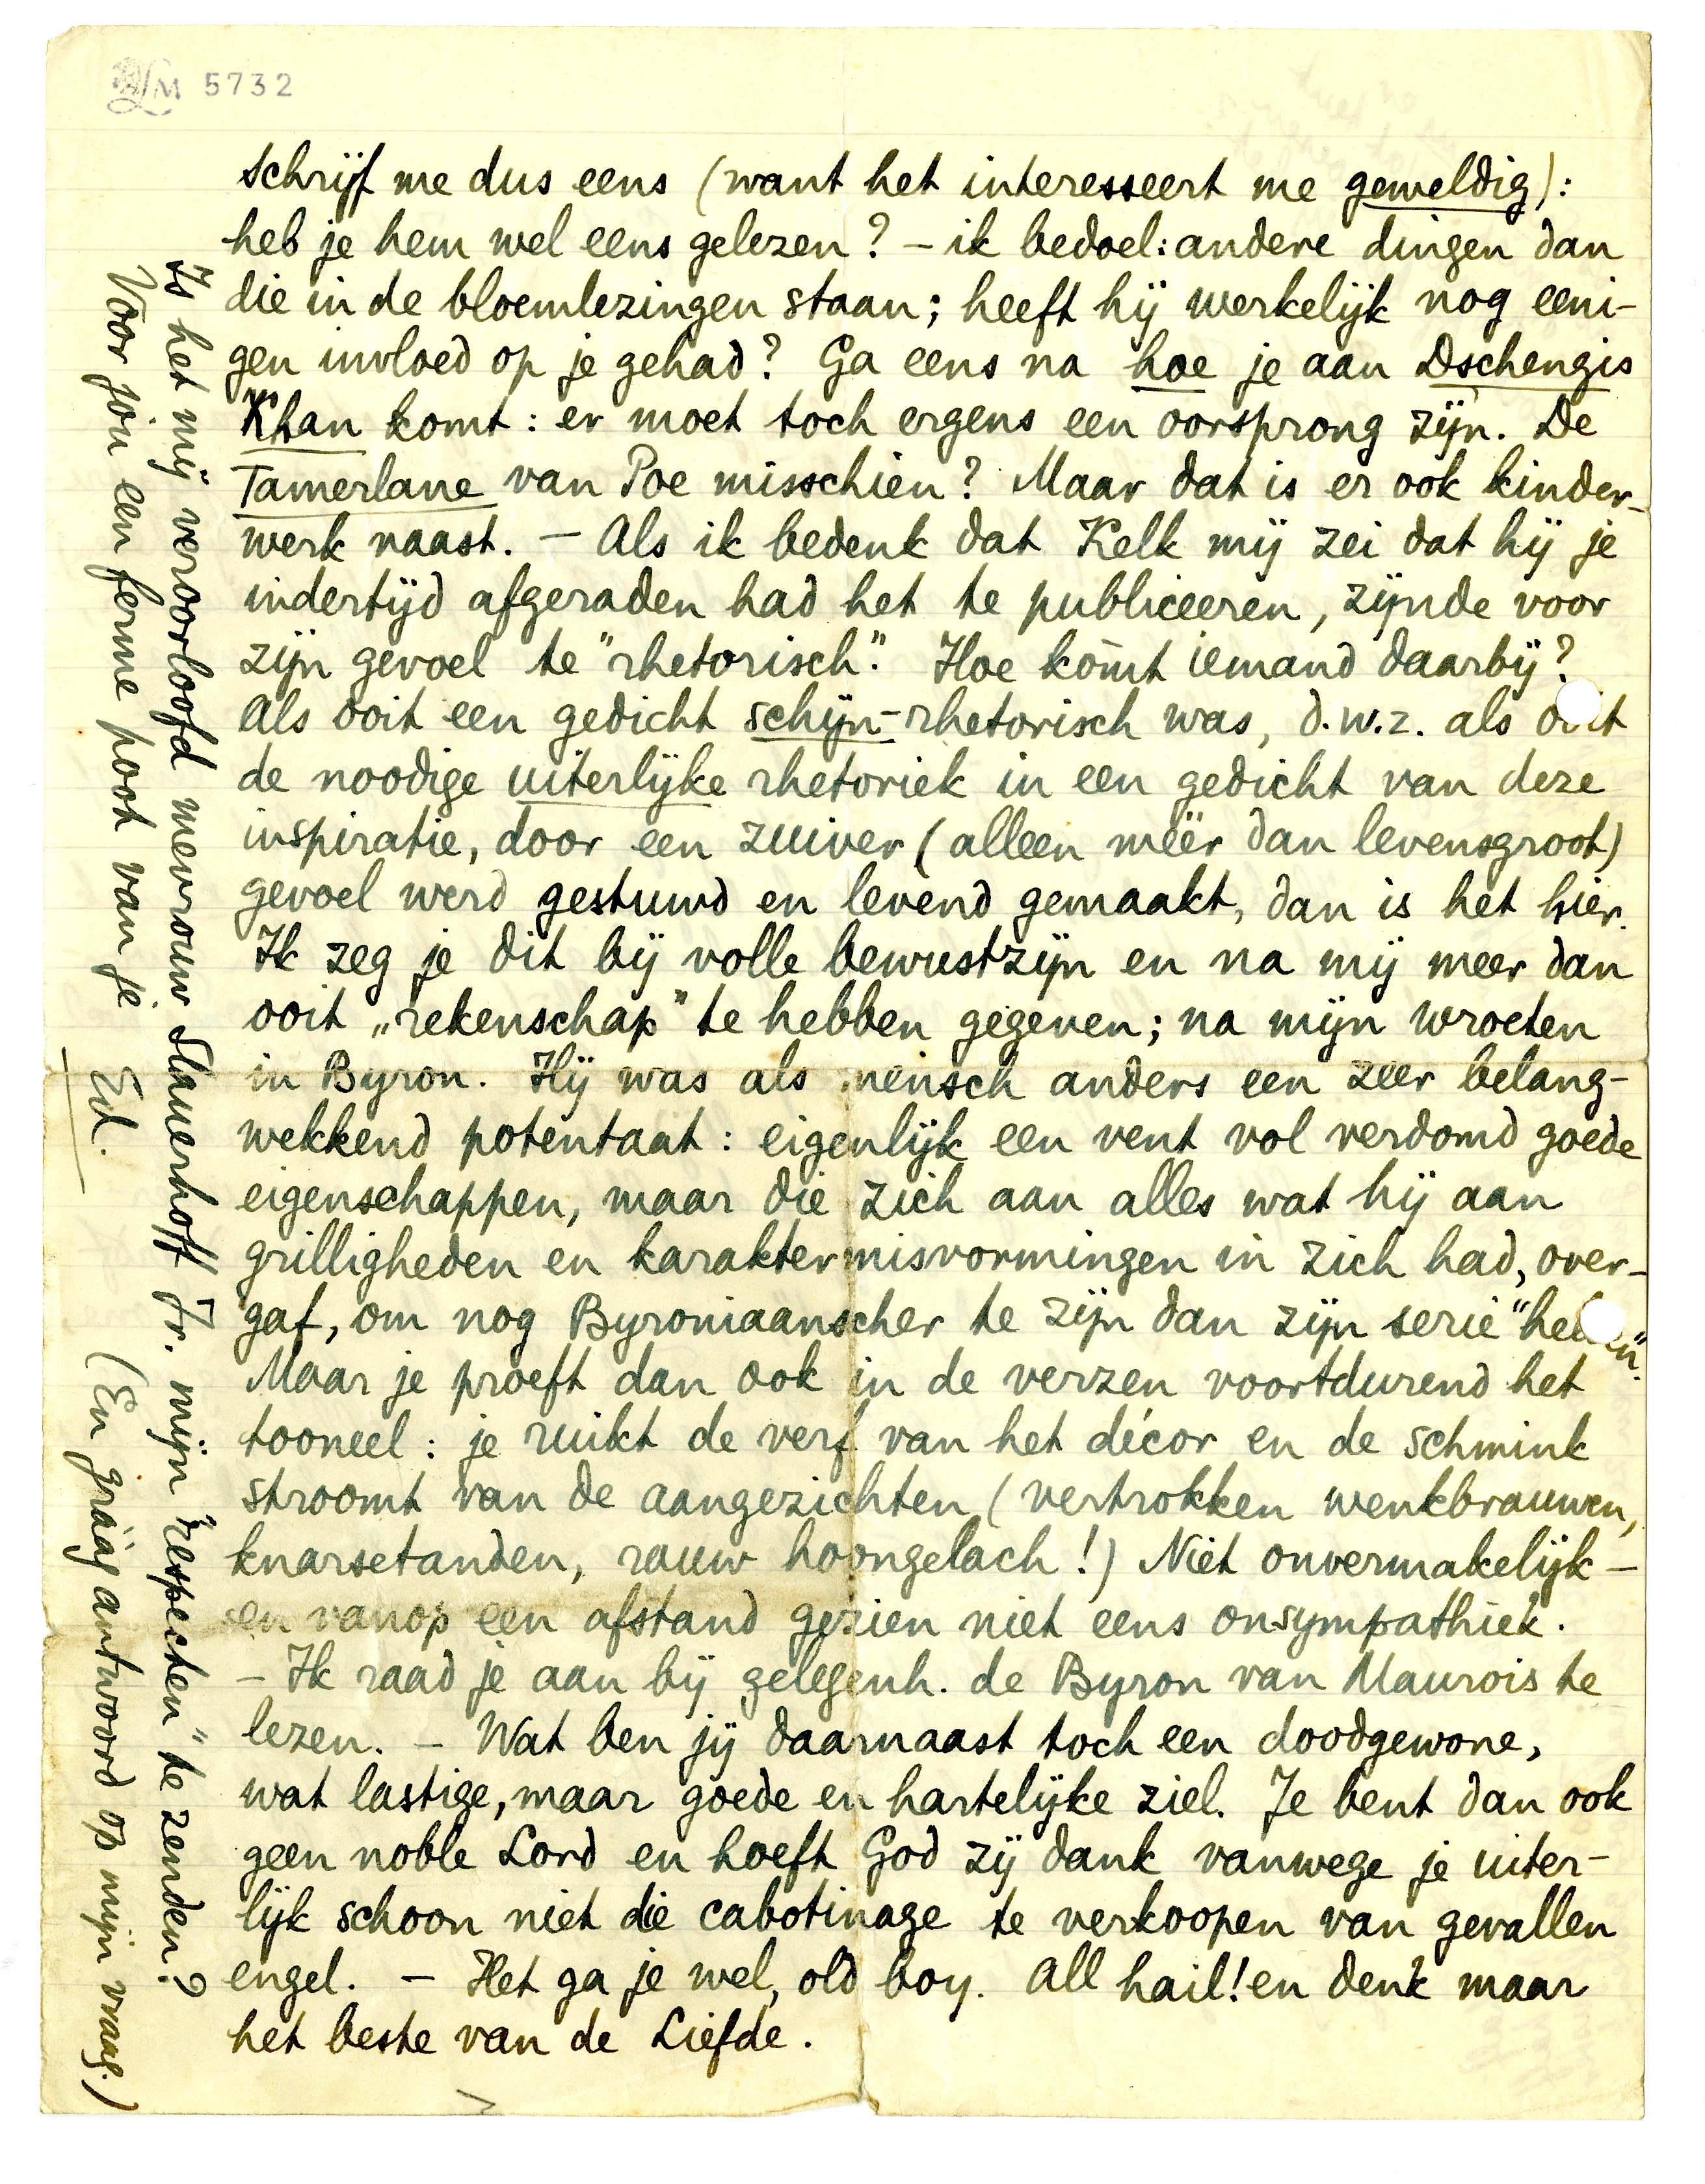 LM 5732
schrijf me dus eens (want het interesseert me geweldig):
heb je hem wel eens gelezen? – ik bedoel: andere dingen dan
die in de bloemlezingen staan; heeft hij werkelijk nog eeni-
gen invloed op je gehad? Ga eens na hoe je aan Dschengis
Khan komt: er moet toch ergens een oorsprong zijn. De
Tamerlane van Poe misschien? Maar dat is er ook kinder-
werk naast. – Als ik bedenk dat Kelk mij zei dat hij je
indertijd afgeraden had het te publiceeren, zijnde voor
zijn gevoel te "rhetorisch". Hoe kòmt iemand daarbij?
Als ooit een gedicht schijn-rhetorisch was, d.w.z. als ooit
de noodige uiterlijke rhetoriek in een gedicht van deze
inspiratie, door een zuiver (alleen méér dan levensgroot)
gevoel werd gestuwd en levend gemaakt, dan is het hier.
Ik zeg je dit bij volle bewustzijn en na mij meer dan
ooit „rekenschap" te hebben gegeven; na mijn wroeten
in Byron. Hij was als mensch anders een zeer belang-
wekkend potentaat: eigenlijk een vent vol verdomd goede
eigenschappen, maar die zich aan alles wat hij aan
grilligheden en karaktermisvormingen in zich had, over-
gaf, om nog Byroniaanscher te zijn dan zijn serie "helden".
Maar je proeft dan ook in de verzen voortdurend het
tooneel: je ruikt de verf van het décor en de schmink
stroomt van de aangezichten (vertrokken wenkbrauwen,
knarsetanden, rauw hoongelach!) Niet onvermakelijk –
en vanop een afstand gezien niet eens onsympathiek.
– Ik raad je aan bij gelegenh. de Byron van Maurois te
lezen. – Wat ben jij daarnaast toch een doodgewone,
wat lastige, maar goede en hartelijke ziel. Je bent dan ook
geen noble Lord en hoeft God zij dank vanwege je uiter-
lijk schoon niet die cabotinage te verkoopen van gevallen
engel. – Het ga je wel, old boy. All hail! en denk maar
het beste van de Liefde.
Is het mij veroorloofd mevrouw Slauerhoff Jr. mijn "respecten" te zenden?
Voor jou een ferme poot van je Ed. (En gráág antwoord op mijn vraag.)